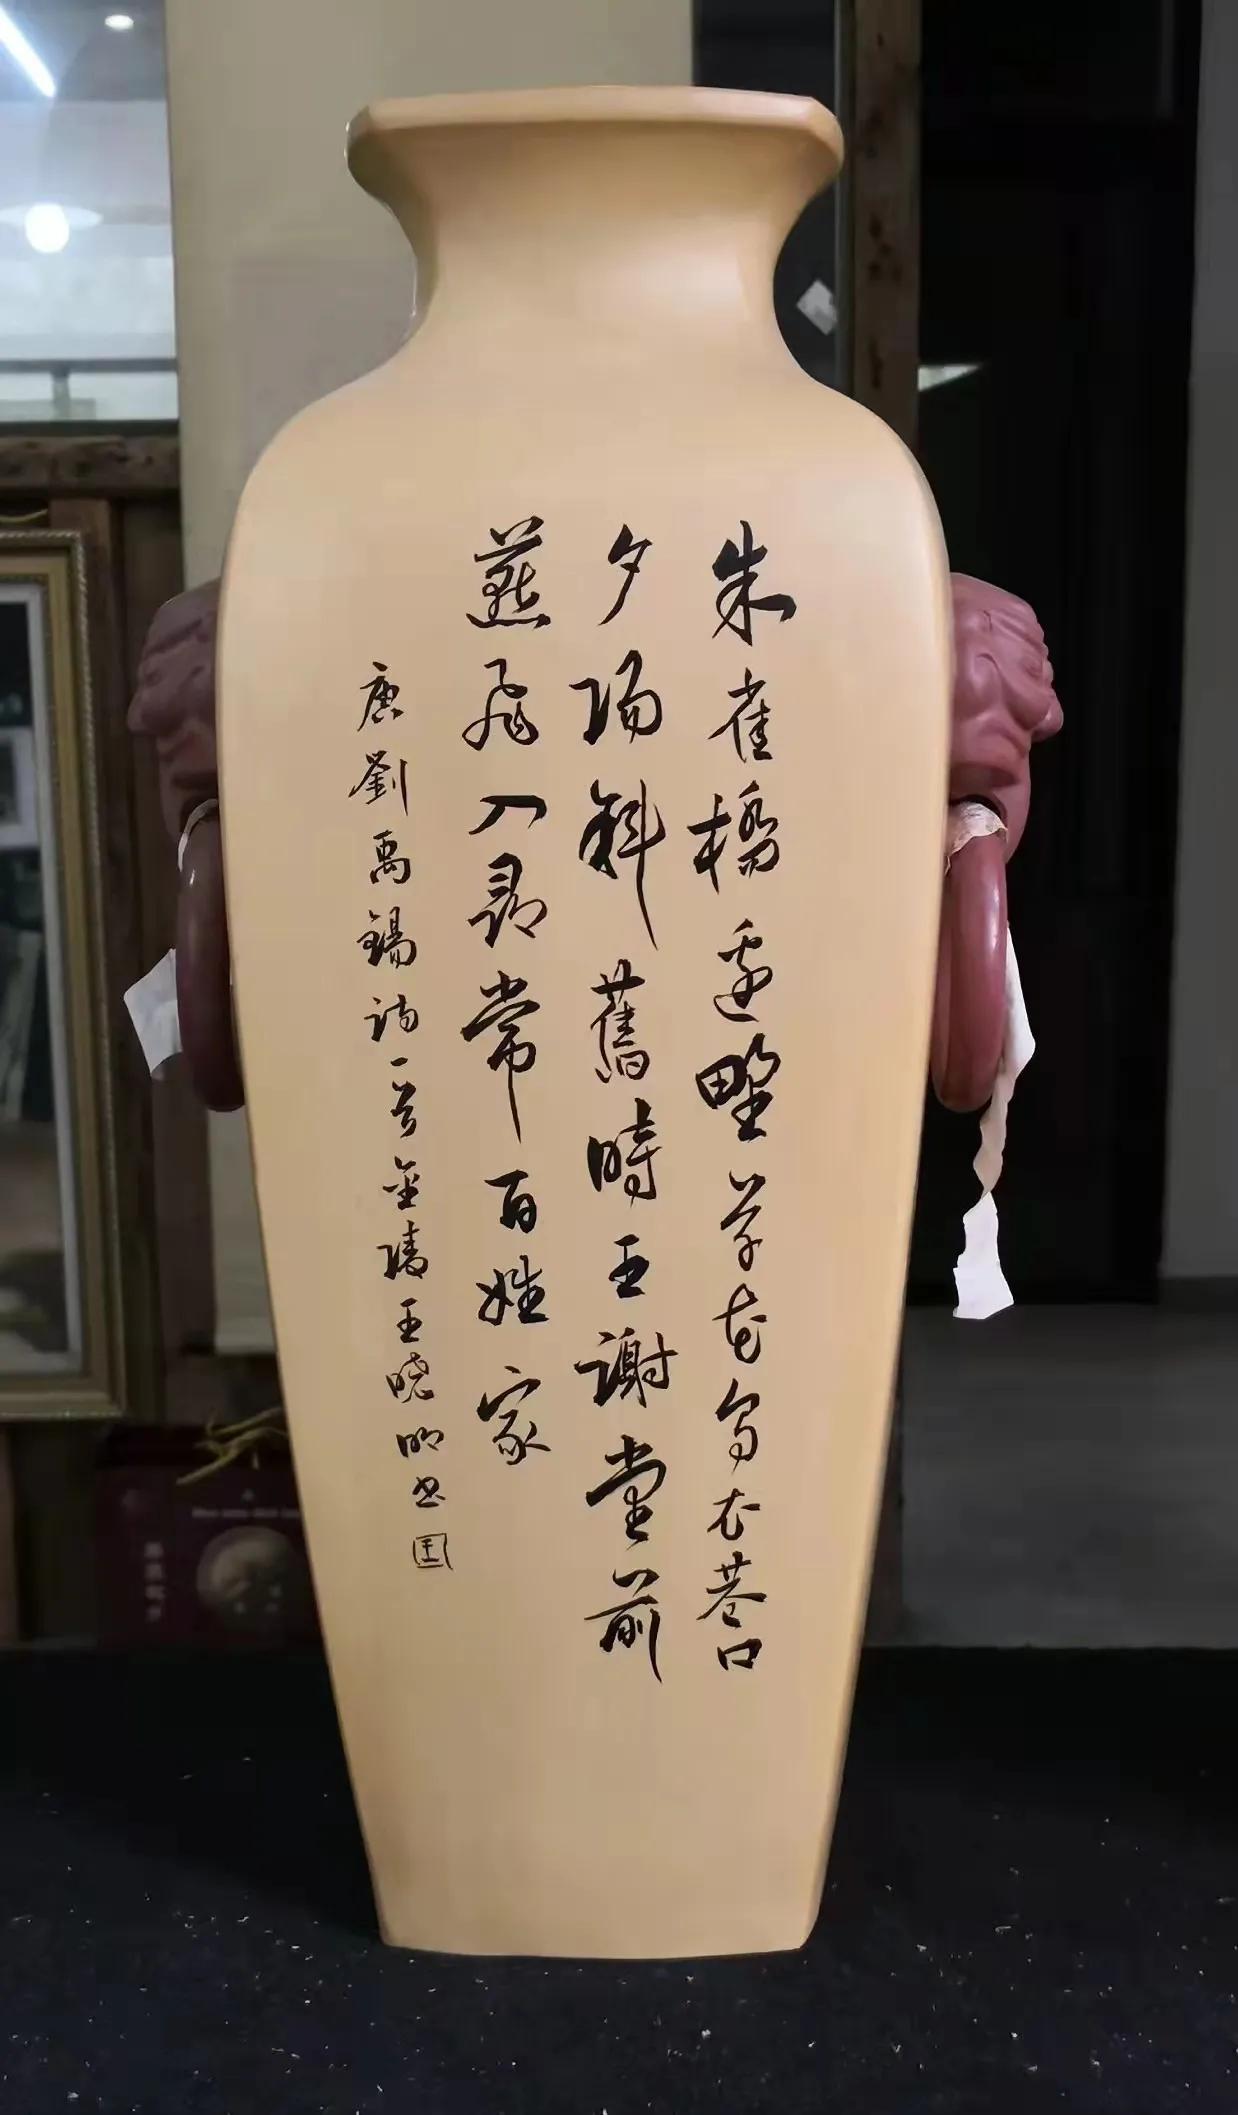 朱雀橋邊野草花烏衣巷口
夕陽斜舊時王謝堂前
燕飛入尋常百姓家
唐劉禹錫詩一首金陵王曉明书
王